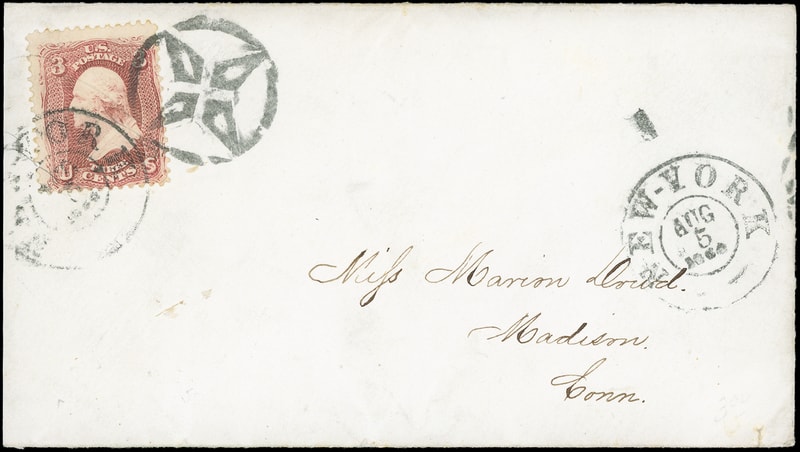 U.S.
POSTAGE
3 3
U S
THREE
CENTS
NEW-YORK
AUG
5
Miss Marion Dowd.
Madison.
Conn.